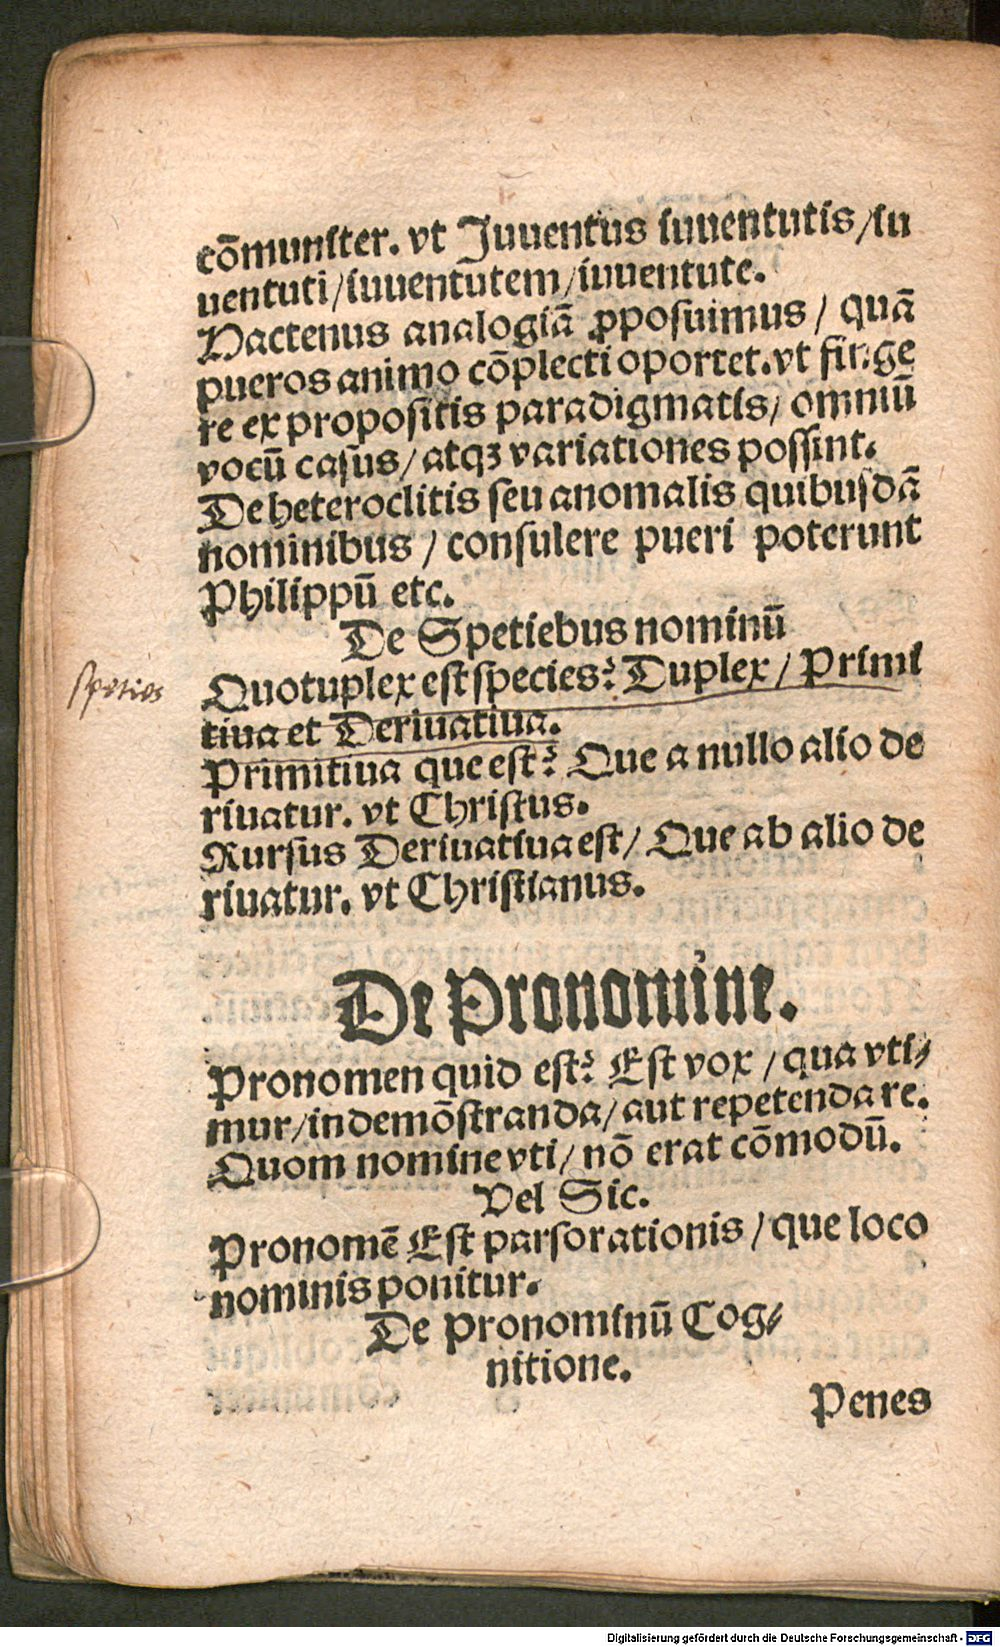 cōmuniter. vt Juuentus iuuentutis/iu
uentuti/iuuentutem/iuuentute.
Hactenus analogiā ꝓposuimus / quā
pueros animo cōplecti oportet. vt finge
re ex propositis paradigmatis/ omniū
vocū casus/ atqꝫ variationes possint.
De heteroclitis seu anomalis quibusdā
nominibus / consulere pueri poterunt
Philippū etc.
De Spetiebus nominū
Quotuplex est species? Duplex / Primi
tiua et Deriuatiua.
Speties
Primitiua que est? Que a nullo alio de
riuatur. vt Christus.
Rursus Deriuatiua est/ Que ab alio de
riuatur. vt Christianus.
De Pronomine.
Pronomen quid est? Est vox / qua vti⸗
mur/in demōstranda/ aut repetenda re.
Quom nomine vti/ nō erat cōmodū.
Vel Sic.
Pronomē Est pars orationis / que loco
nominis ponitur.
De Pronominū Cog⸗
nitione.
Penes
Digitalisierung gefördert durch die Deutsche Forschungsgemeinschaft - DFG